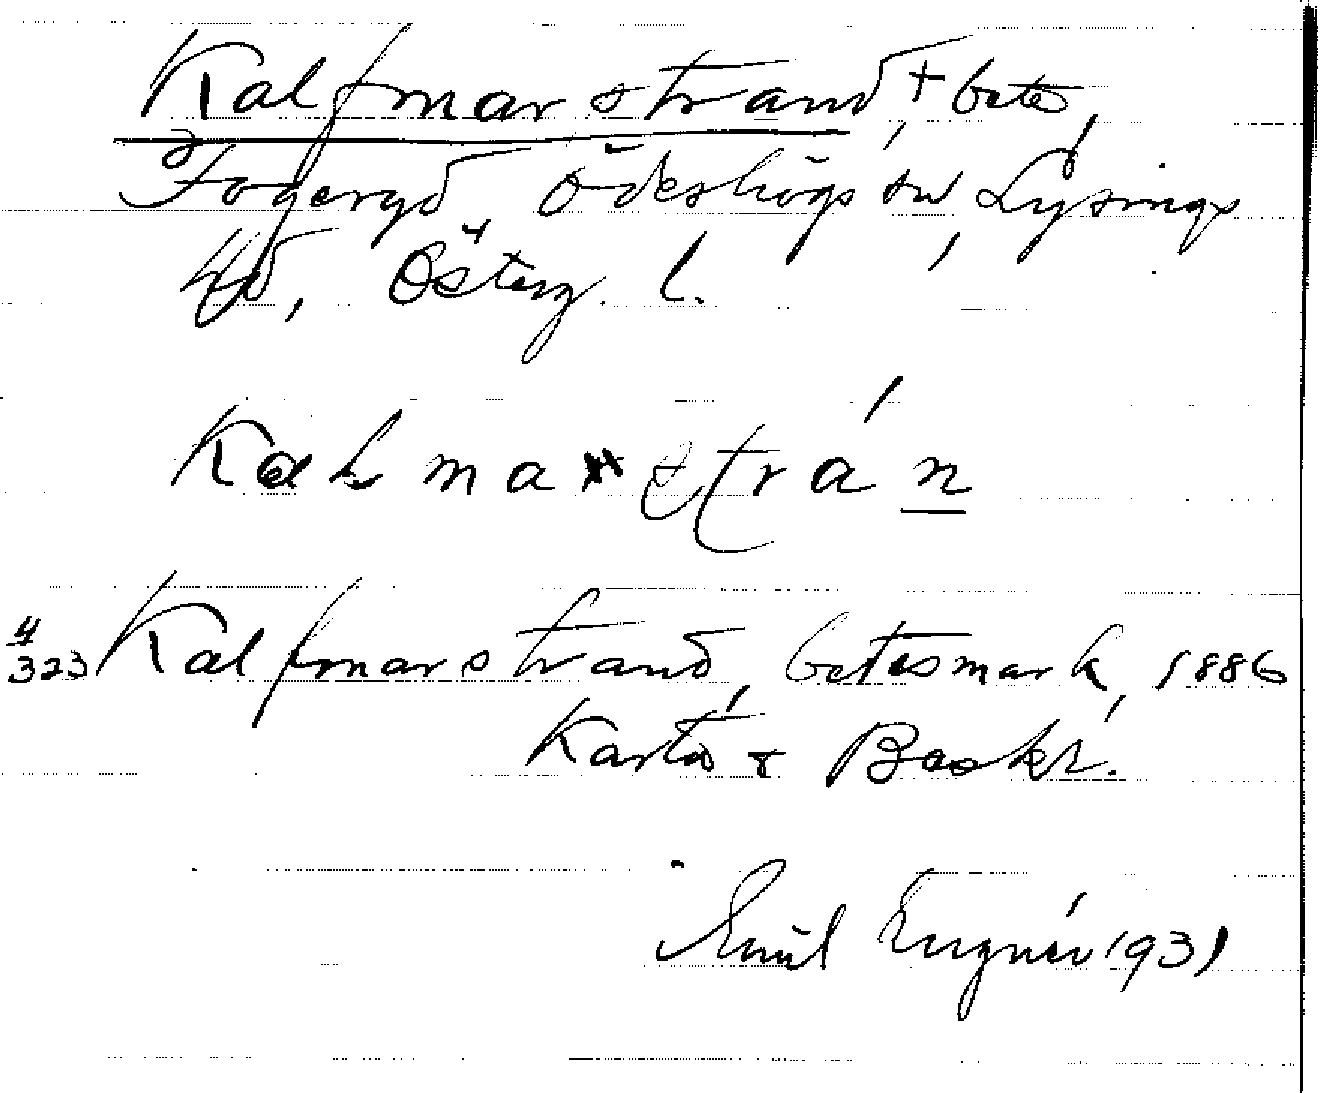 Kalfmarstrand, + bete,
Fogeryd, Ödeshögs sn, Lysings
hd, Österg. l.
Kalmastrán
4/323 Kalfmarstrand, betesmark, 1886
Karta & Beskr.
Emil 1931